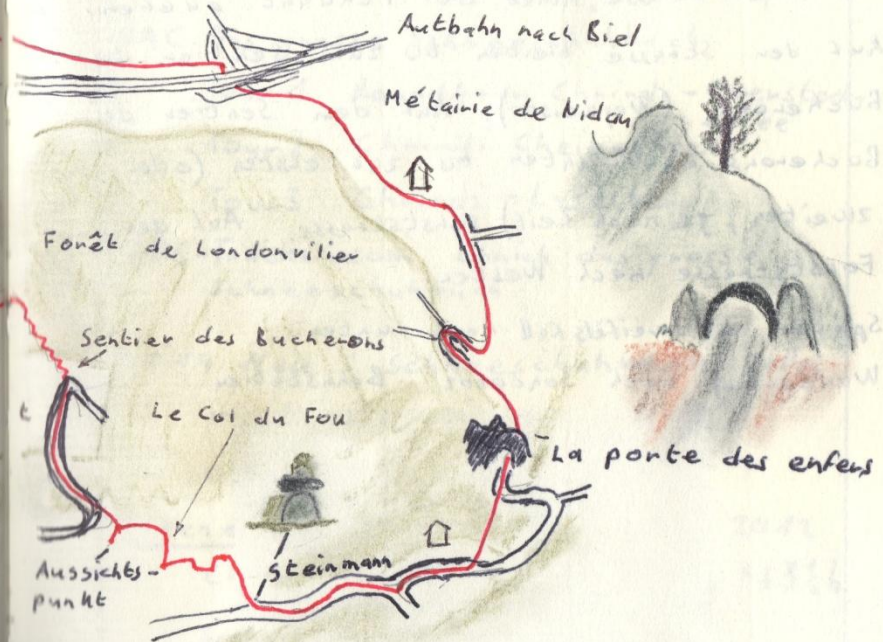 Autbahn nach Biel
Métairie de Nidau
Forêt de Londonvilier
Sentier des Bucherons
Le Col du Fou
La porte des enfers
Steinmann
Aussichts-
punkt